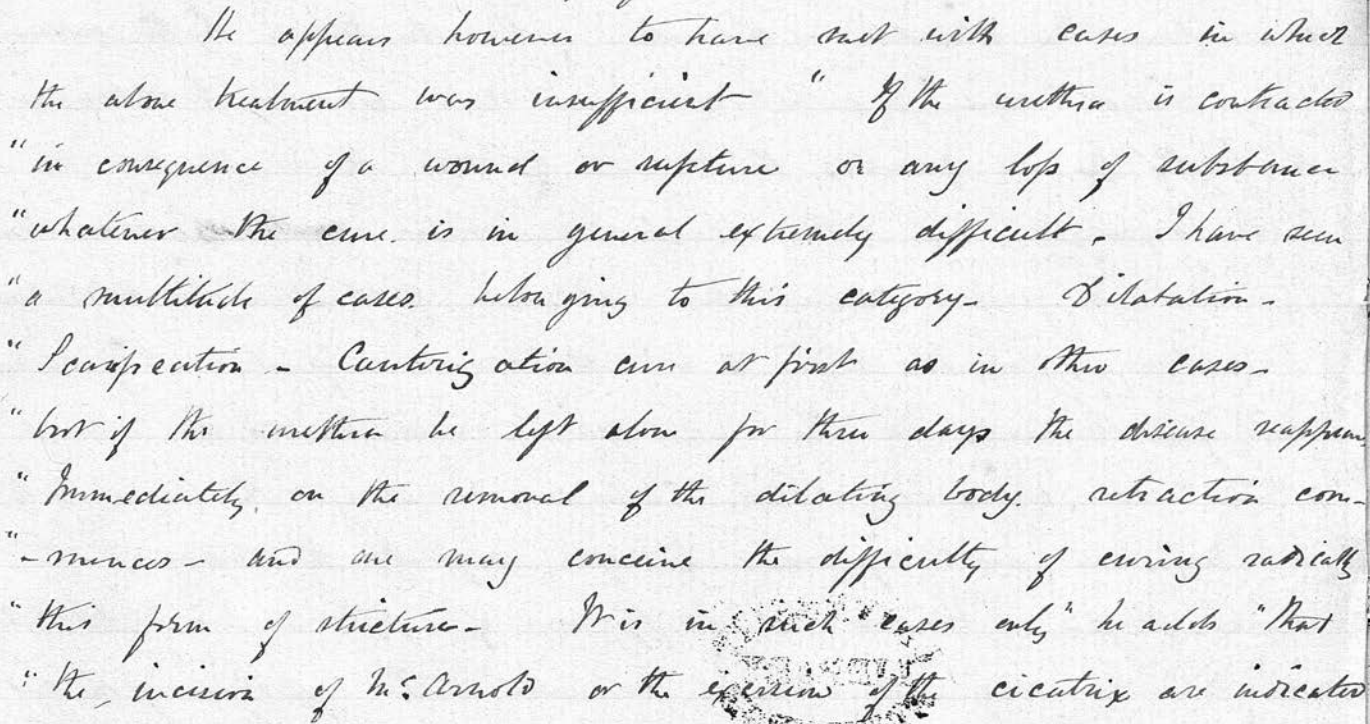 He appears however to have met with cases in which
the above treatment was insufficient " If the urethra is contracted
"in consequence of a wound or rupture or any loss of substance
"whatever the cure is in general extremely difficult. I have seen
"a multitude of cases belonging to this category - Dilatation -
"Scarification - Cauterization cure at first as in other cases -
"but if the urethra be left alone for three days the disease reappears
"Immediately on the removal of the dilating body retraction com-
"-mences - and one may conceive the difficulty of curing radically
"this form of stricture - It is in such "cases only" he adds "that
"the incision of Mr. Arnold or the excision of the cicatrix are indicated